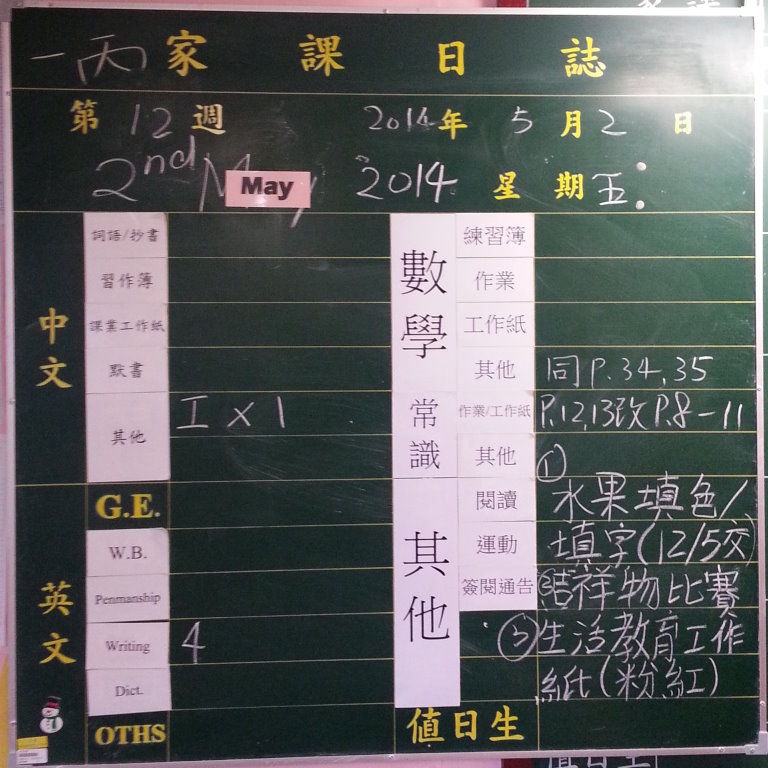 一丙家課日誌
第12週 2014年5月2日
2nd May 2014 星期五
中文
詞語/抄書
習作簿
課業工作紙
默書
其他 工x1
英文
G.E.
W.B.
Penmanship
Writing 4
Dict.
OTHS
數學
練習簿
作業
工作紙
其他 同P.34,35
常識
作業/工作紙 P.12,13改P.8-11
其他
其他
閱讀 ①水果填色/
運動 填字(12/5交)
簽閱通告 ②吉祥物比賽
③生活教育工作
紙(粉紅)
值日生